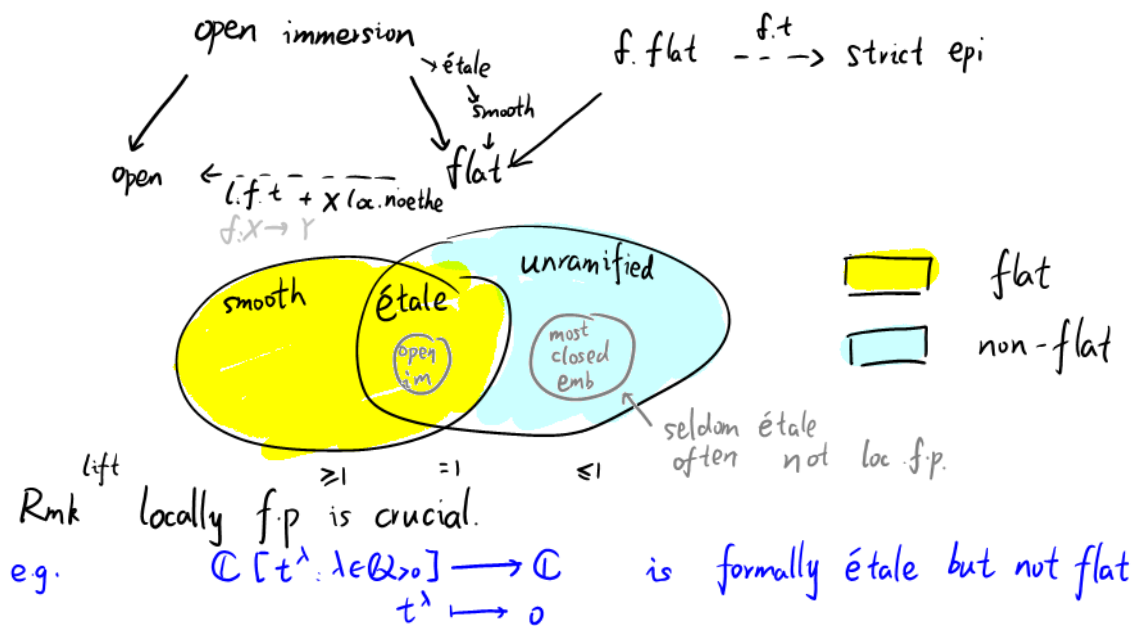 open immersion
étale
smooth
f. flat f.t strict epi
open flat
l.f.t + X loc. noethe
f: X → Y
smooth étale unramified
open im
most closed emb
flat
non-flat
seldom étale
often not loc. f.p.
lift ≥1 =1 ≤1
Rmk locally f.p is crucial.
e.g. ℂ[t^λ: λ∈ℚ_{>0}] ⟶ ℂ is formally étale but not flat
t^λ ⟼ 0